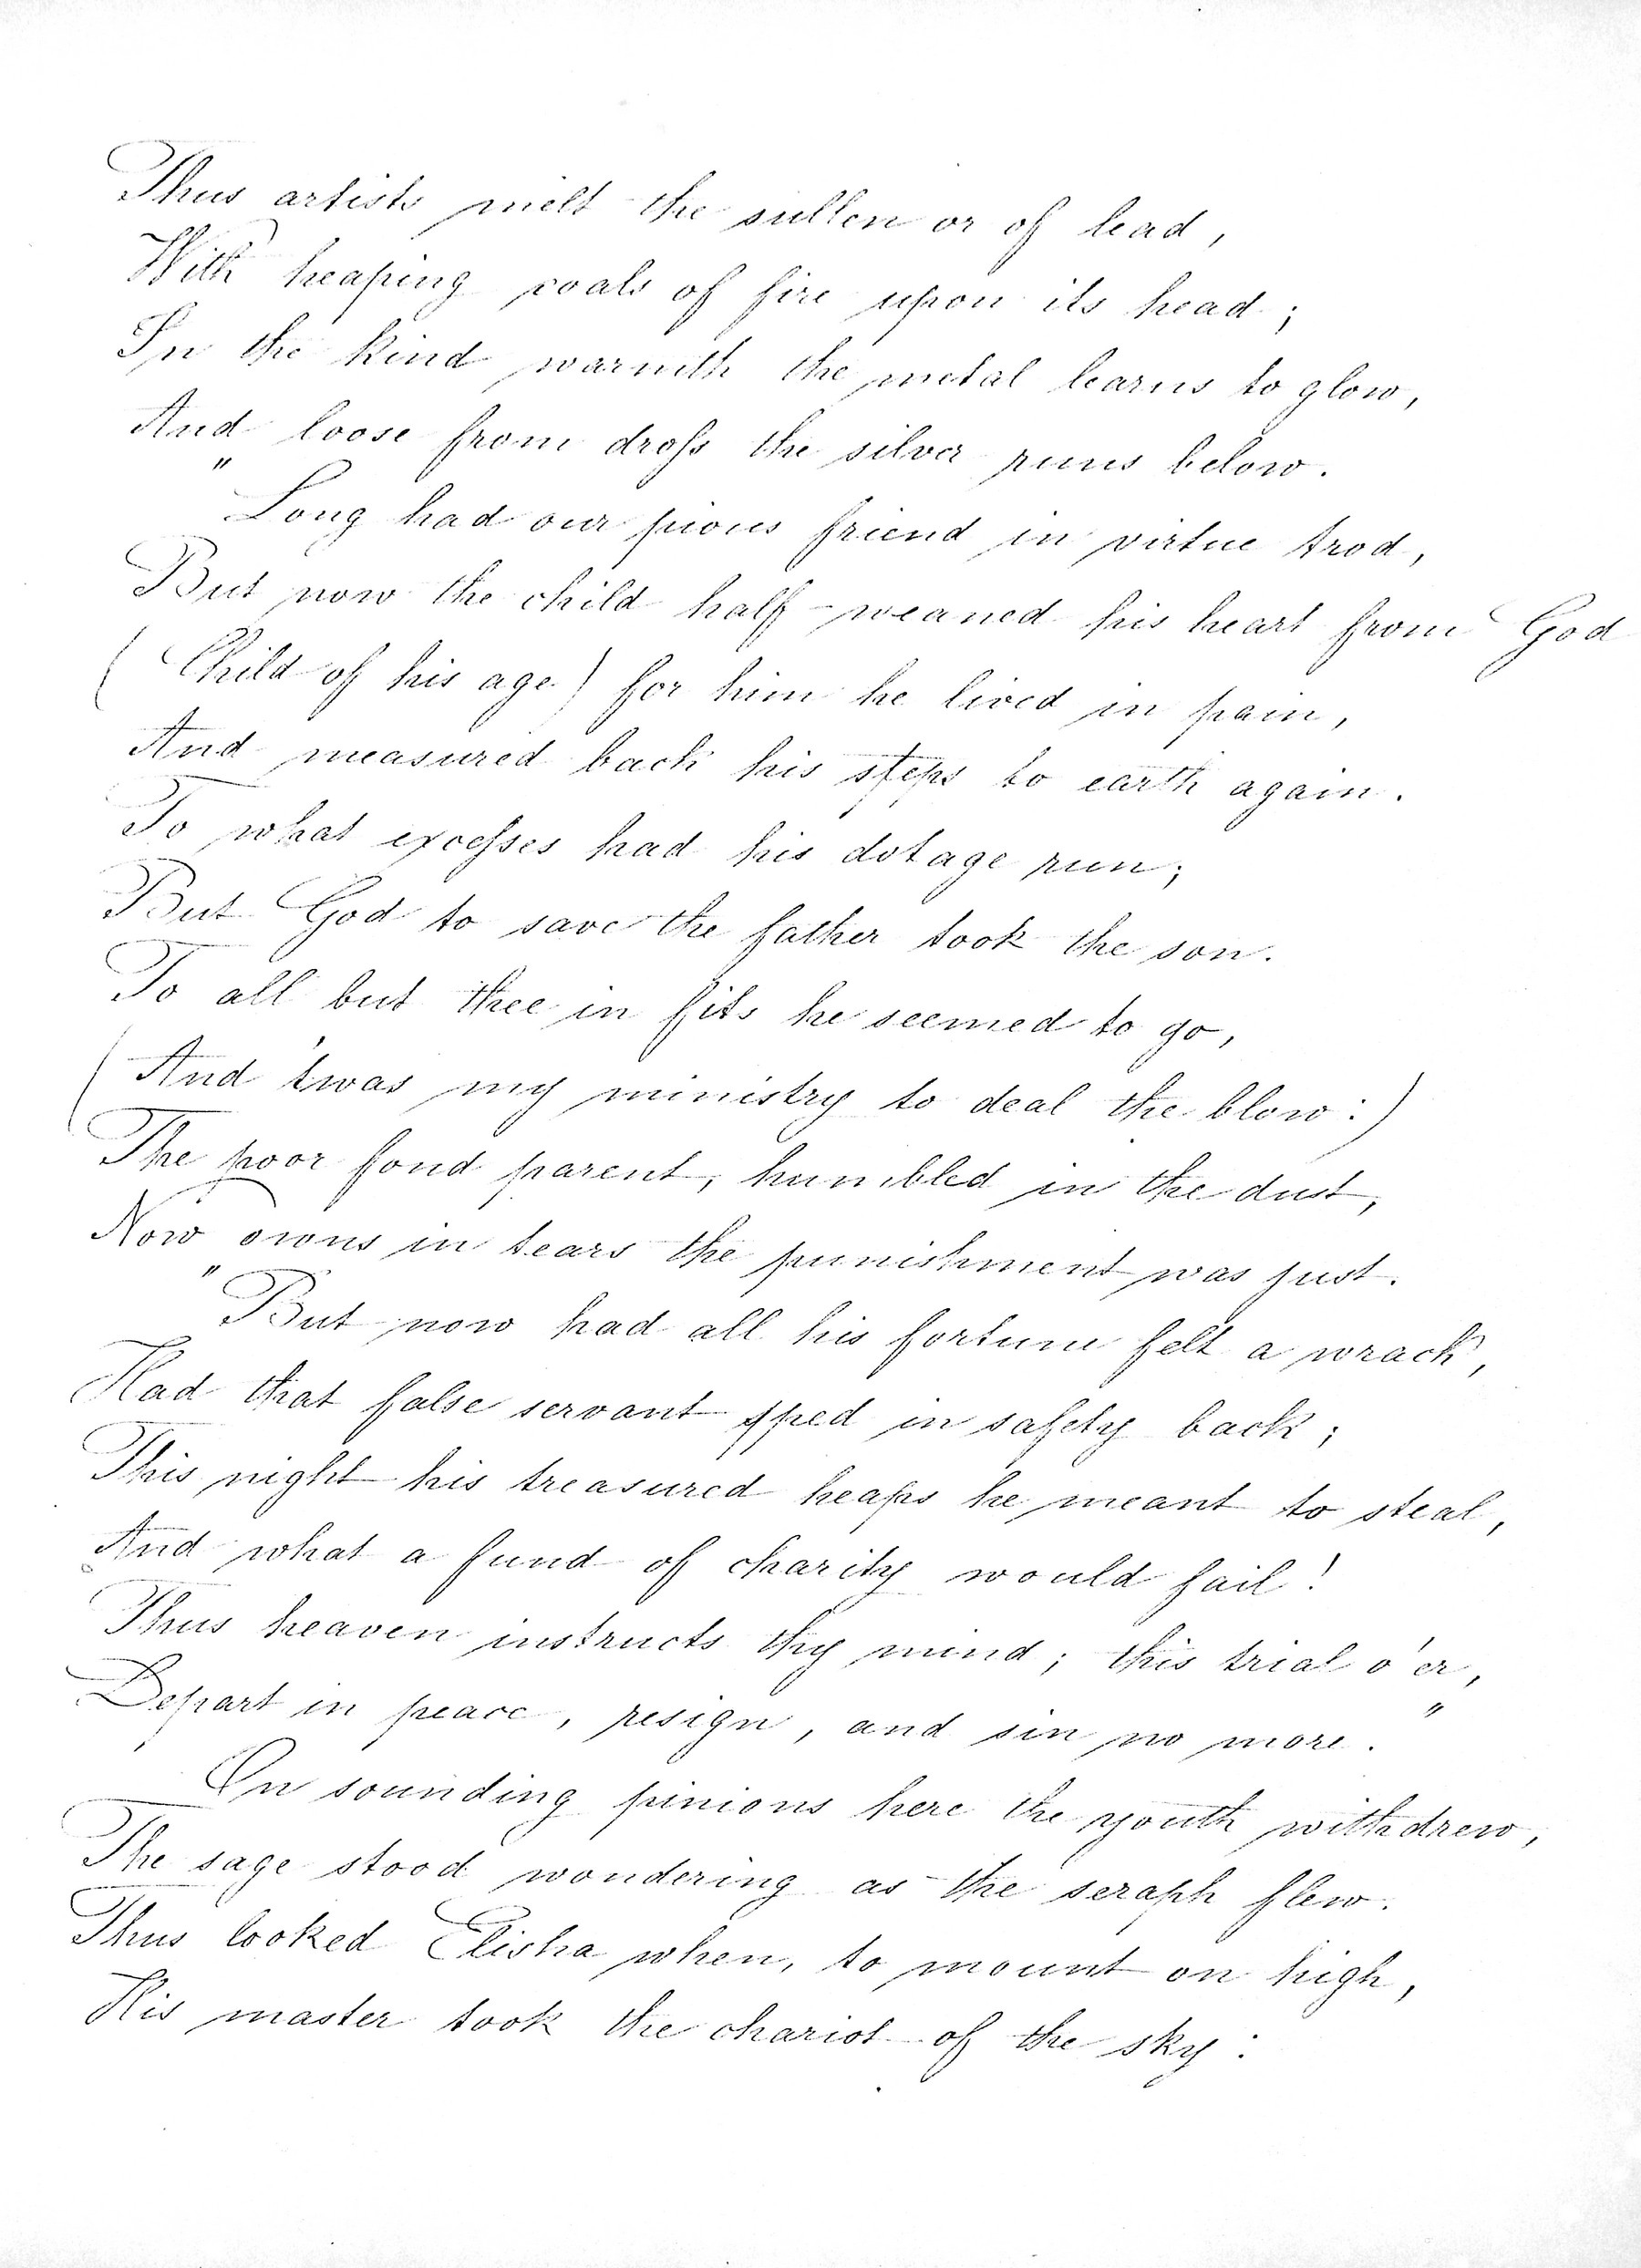 Thus artists melt the sullen or of lead,
With heaping coals of fire upon its head;
In the kind warmth the metal learns to glow,
And loose from dross the silver runs below.
"Long had our pious friend in virtue trod,
But now the child half-weaned his heart from God
(Child of his age) for him he lived in pain,
And measured back his steps to earth again.
To what excesses had his dotage run;
But God to save the father took the son.
To all but thee in fits he seemed to go,
(And 'twas my ministry to deal the blow:)
The poor fond parent, humbled in the dust,
Now owns in tears the punishment was just.
"But now had all his fortune felt a wrack,
Had that false servant sped in safety back;
This night his treasured heaps he meant to steal,
And what a fund of charity would fail!
Thus heaven instructs thy mind; this trial o'er,
Depart in peace, resign, and sin no more."
On sounding pinions here the youth withdrew,
The sage stood wondering as the seraph flew.
Thus looked Elisha when, to mount on high,
His master took the chariot of the sky: